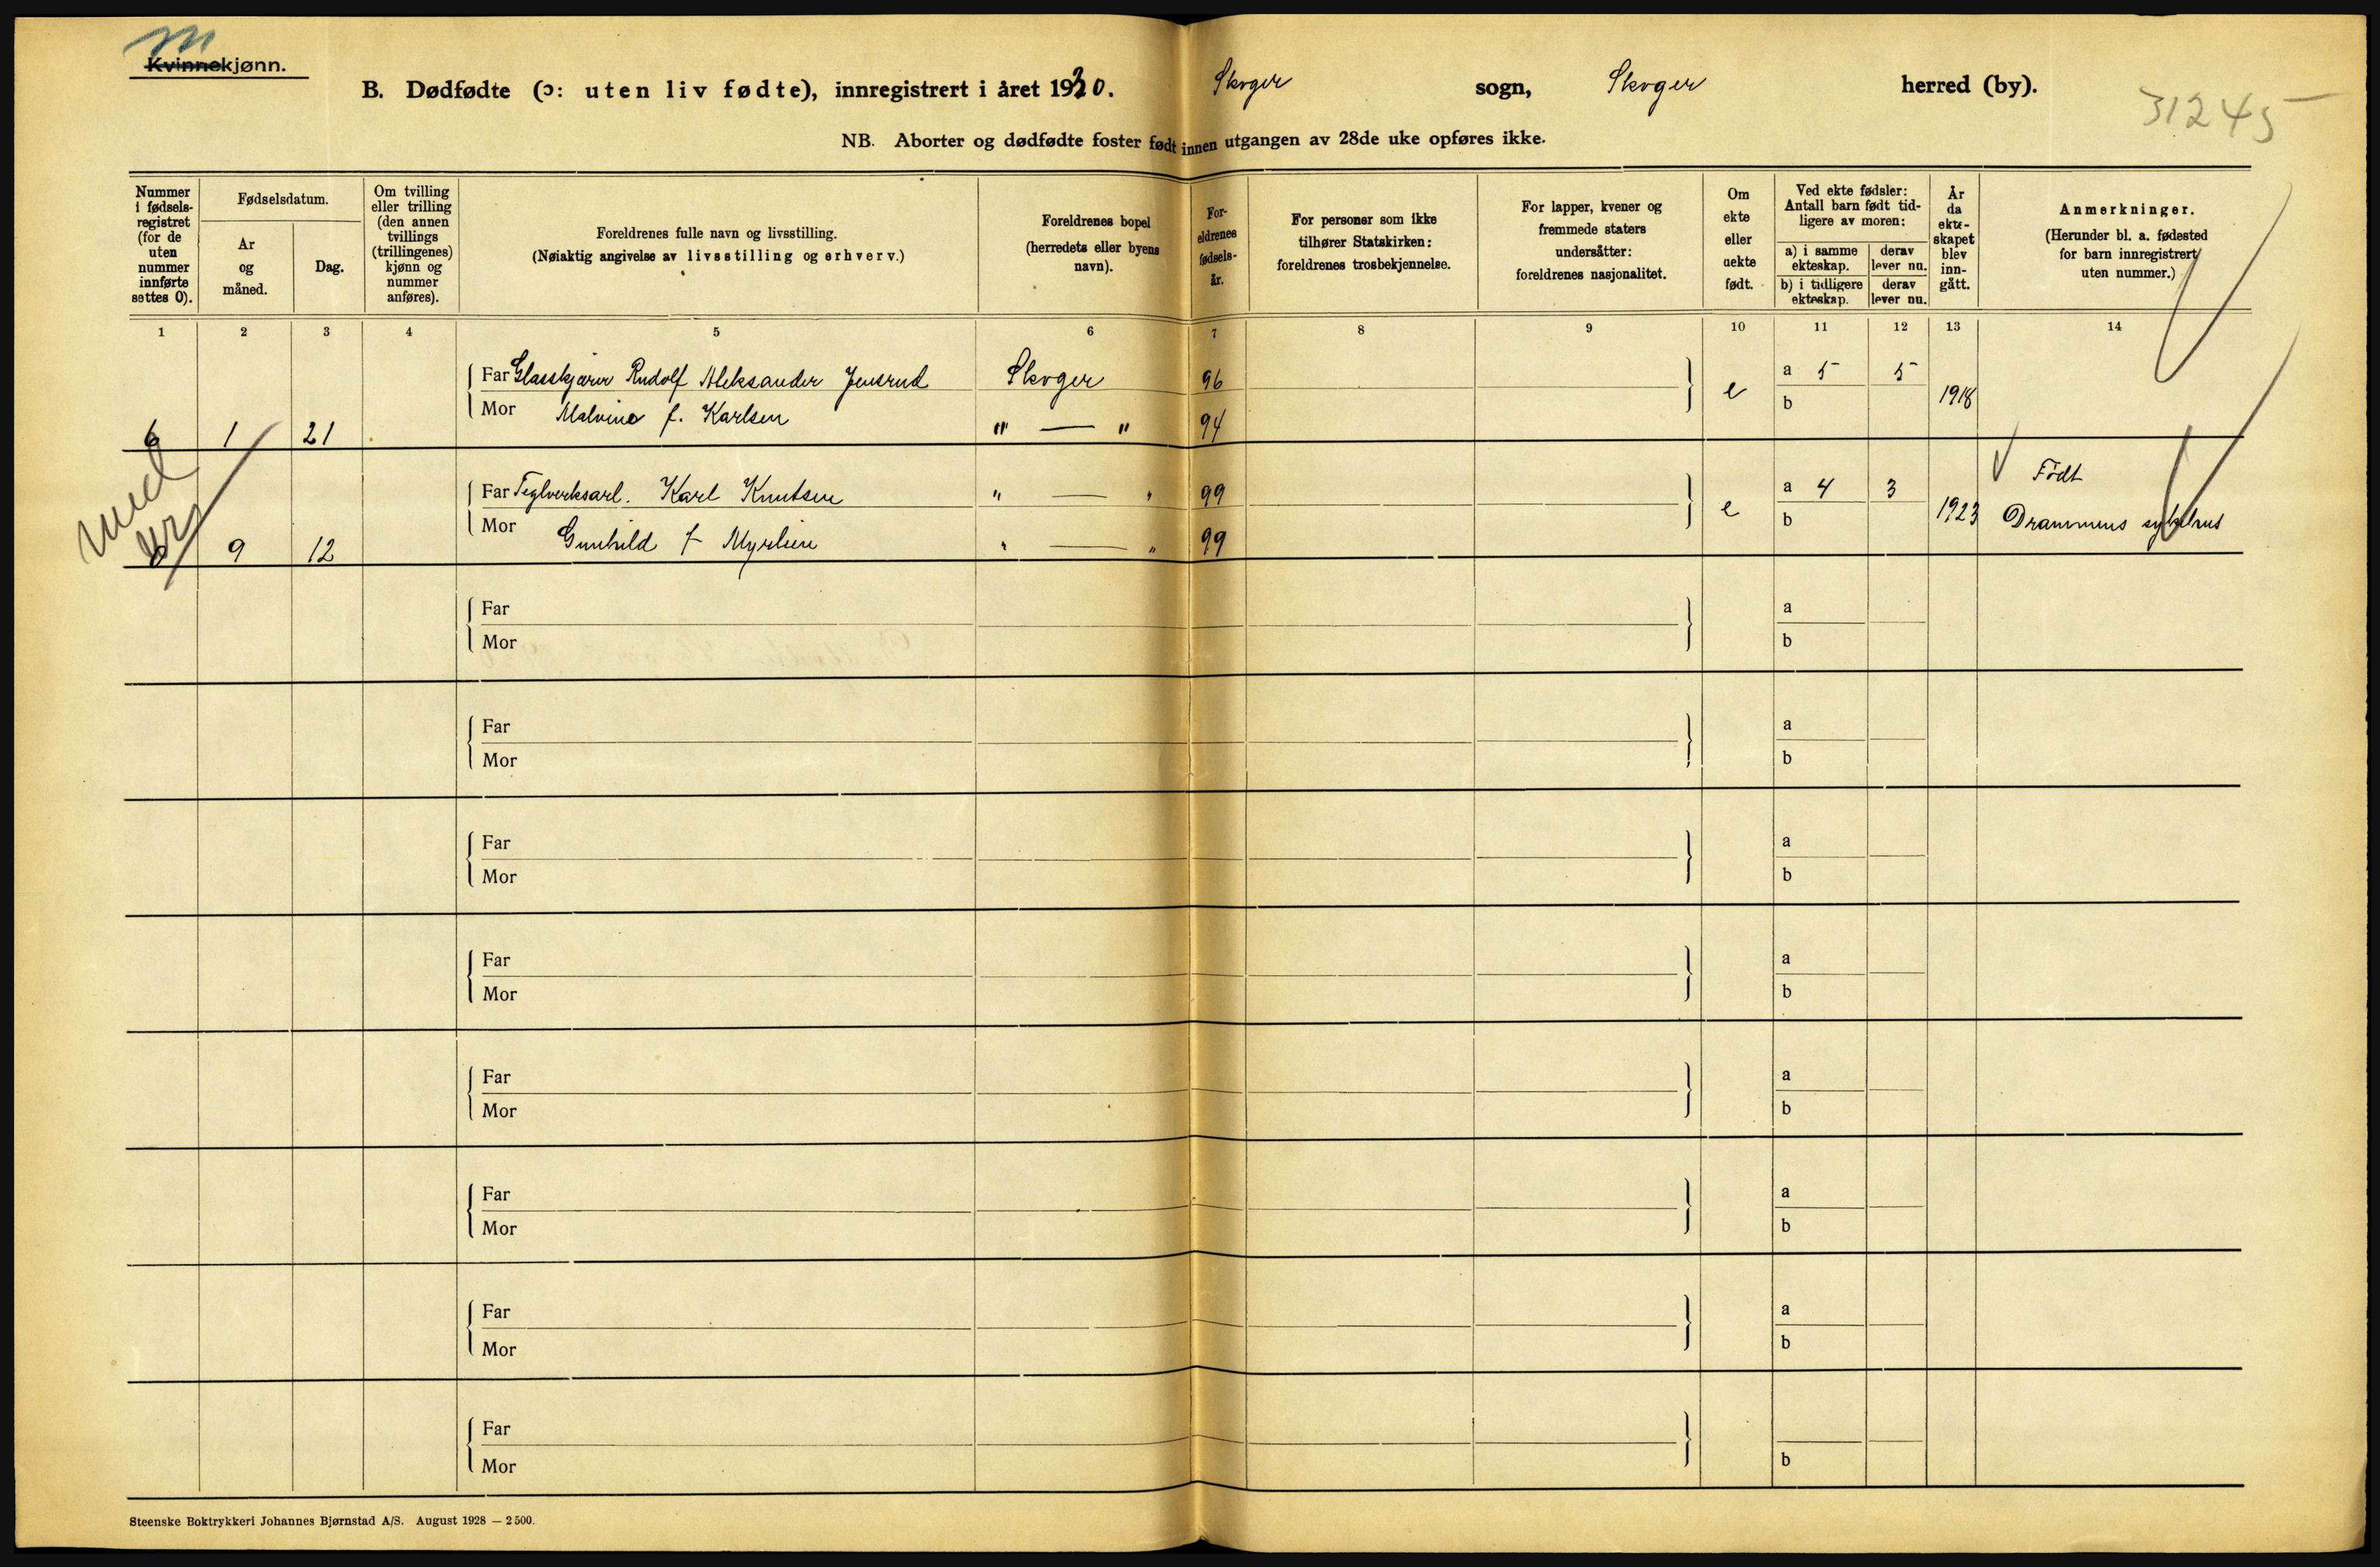 M
Kvinnekjønn.
B. Dødfødte (ɔ: uten liv fødte), innregistrert i året 1930. Skoger sogn, Skoger herred (by).
31245
NB. Aborter og dødfødte foster født innen utgangen av 28de uke opføres ikke.
Nummer i fødsels-registret (for de uten nummer innførte settes 0).
Fødselsdatum.
År og måned.
Dag.
Om tvilling eller trilling (den annen tvillings (trillingenes) kjønn og nummer anføres).
Foreldrenes fulle navn og livsstilling.
(Nøiaktig angivelse av livsstilling og erhverv.)
Foreldrenes bopel (herredets eller byens navn).
For-eldrenes fødsels-år.
For personer som ikke tilhører Statskirken: foreldrenes trosbekjennelse.
For lapper, kvener og fremmede staters undersåtter: foreldrenes nasjonalitet.
Om ekte eller uekte født.
Ved ekte fødsler: Antall barn født tid-ligere av moren:
a) i samme ekteskap.
derav lever nu.
b) i tidligere ekteskap.
derav lever nu.
År da ekte-skapet blev inn-gått.
Anmerkninger.
(Herunder bl. a. fødested for barn innregistrert uten nummer.)
1 2 3 4 5 6 7 8 9 10 11 12 13 14
Far Glasskjærer Rudolf Aleksander Jensrud Skoger 96 a 5 5
Mor Malvine f. Karlsen " — " 94 e b 1918
6 1 21
Far Teglverksarb. Karl Knutsen " — " 99 a 4 3 Født
Mor Gunhild f Myrlien " — " 99 e b 1923 Drammens sykehus
0 9 12
Far a
Mor b
Far a
Mor b
Far a
Mor b
Far a
Mor b
Far a
Mor b
Far a
Mor b
Far a
Mor b
Far
Mor b
Steenske Boktrykkeri Johannes Bjørnstad A/S. August 1928 — 2 500.